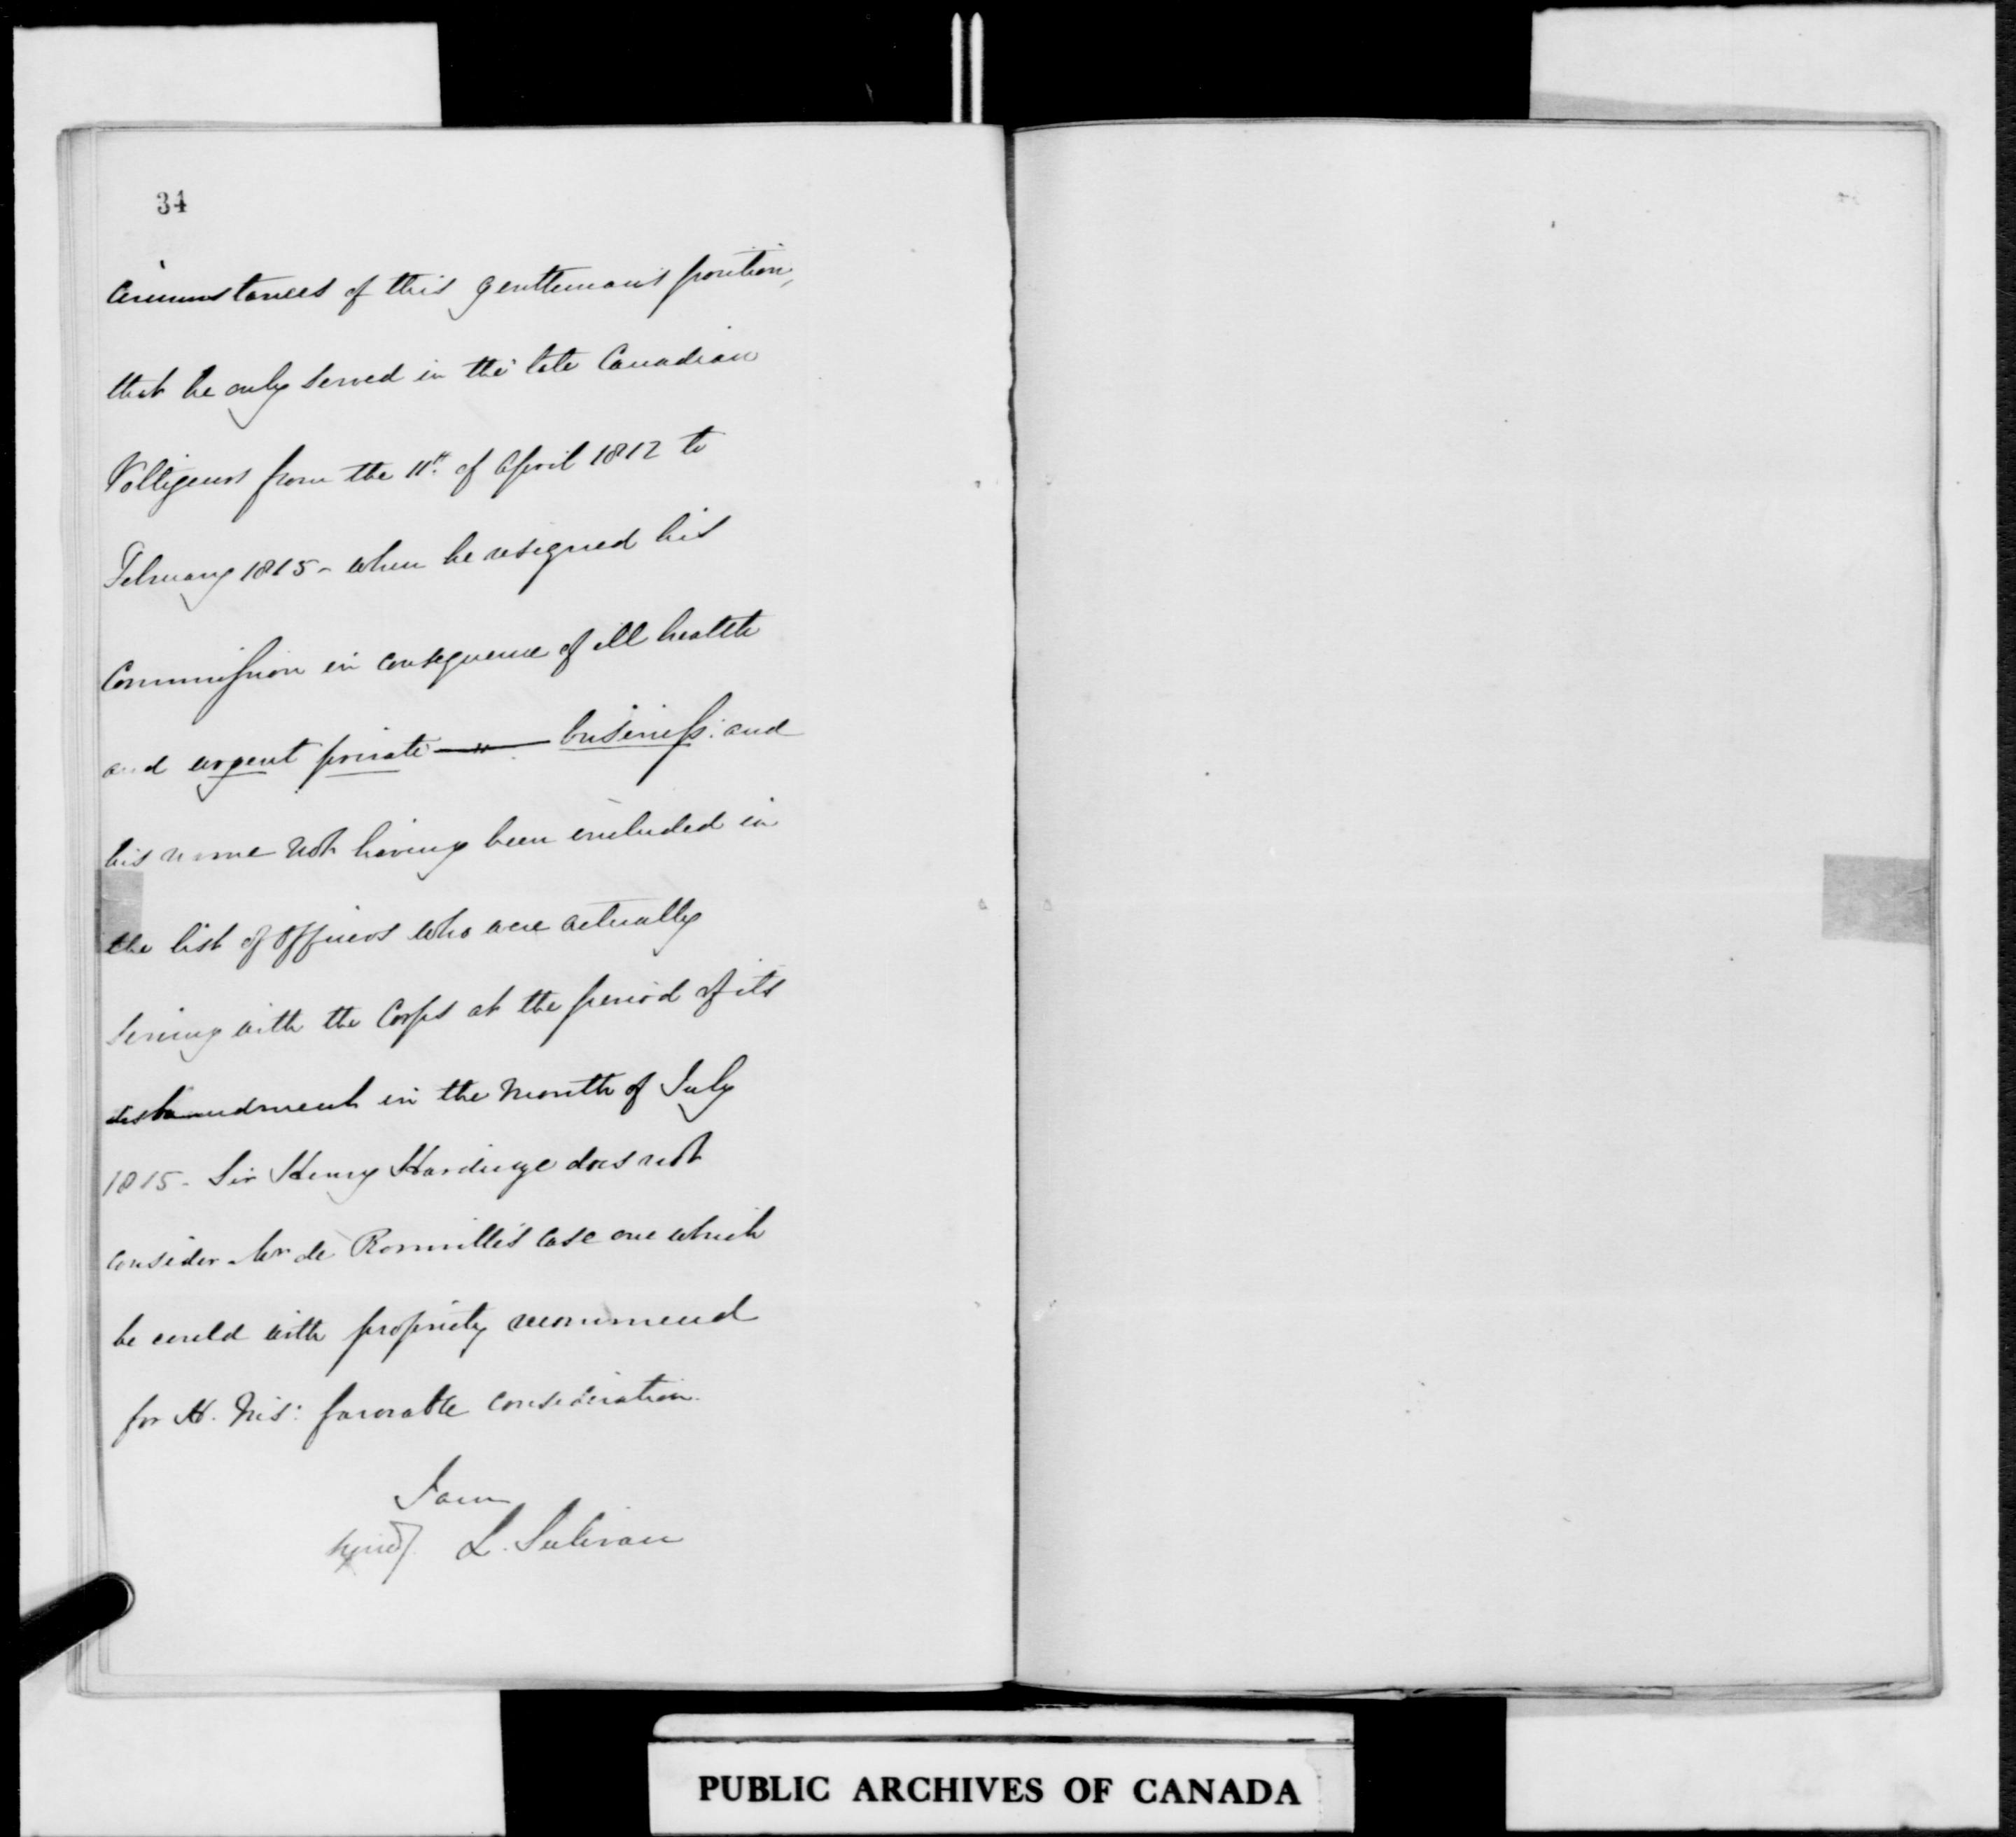 34
Circumstances of this gentleman's position,
that he only served in the late Canadian
Voltigeurs from the 11th. of April 1812 to
February 1815 - when he resigned his
Commission in consequence of ill health
and urgent private — business: and
his name not having been included in
the list of Officers who were actually
serving with the Corps at the period of its
disbandment in the Month of July
1815 - Sir Henry Hardinge does not
consider Mr de Rouville's case one which
he could with propriety recommend
for H. Ms: favorable consideration.
I am
signed L. Sulivan
PUBLIC ARCHIVES OF CANADA